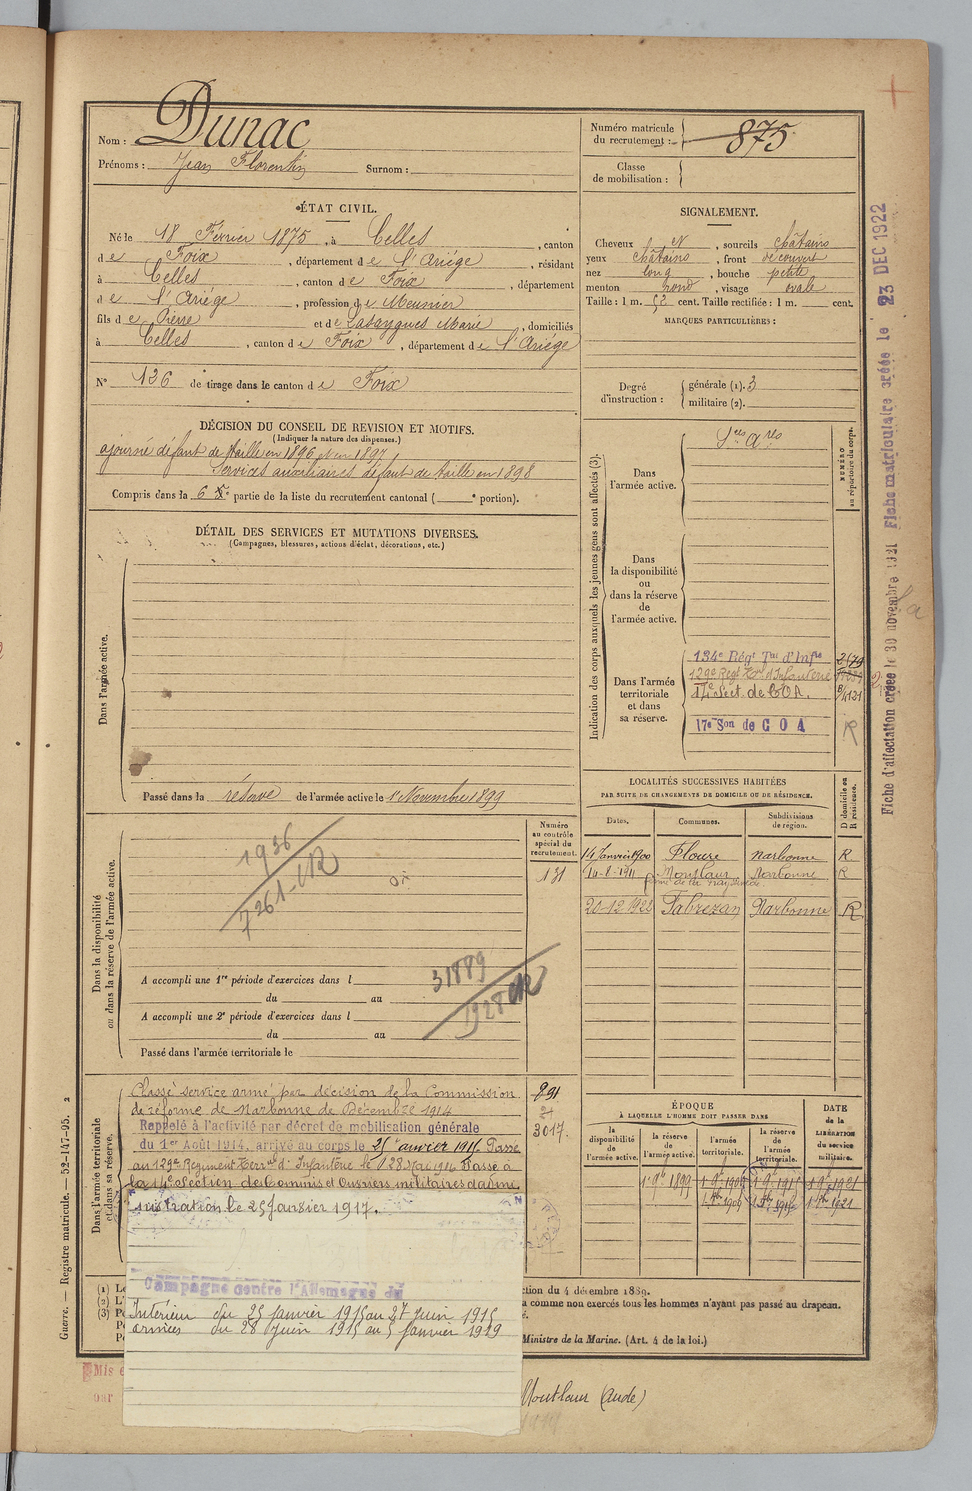 Nom : Dunac
Prénoms : Jean Florentin Surnom :
Numéro matricule du recrutement : 875
Classe de mobilisation :
ÉTAT CIVIL.
Né le 18 Février 1875, à Celles, canton
de Foix, département de l'Ariège, résidant
à Celles, canton de Foix, département
de l'Ariége, profession de Meunier
fils de Pierre et de Marie, domiciliés
à Celles, canton de Foix, département de l'Ariège
N° 126 de tirage dans le canton de Foix
SIGNALEMENT.
Cheveux et, sourcils châtains
yeux châtains, front découvert
nez long, bouche petite
menton rond, visage ovale
Taille : 1 m. 52 cent. Taille rectifiée : 1 m. cent.
MARQUES PARTICULIÈRES :
Degré d'instruction : générale (1). 3
militaire (2).
DÉCISION DU CONSEIL DE REVISION ET MOTIFS.
(Indiquer la nature des dispenses.)
ajourné défaut de taille en 1896 et en 1897
Services auxiliaires défaut de taille en 1898
Compris dans la 6e partie de la liste du recrutement cantonal ( e portion).
DÉTAIL DES SERVICES ET MUTATIONS DIVERSES.
(Campagnes, blessures, actions d'éclat, décorations, etc.)
Dans l'armée active.
Passé dans la réserve de l'armée active le 1er Novembre 1899
Indication des corps auxquels les jeunes gens sont affectés (3).
NUMÉRO au répertoire du corps.
Dans l'armée active.
Sces Ares
Dans la disponibilité ou dans la réserve de l'armée active.
Dans l'armée territoriale et dans sa réserve.
134e Régt Tal d'Infie
129e Regt Ter d'Infanterie
17e Sect. de COA.
17e Son de C O A
R
Fiche d'affectation créée le 30 novembre 1921 Fiche matriculaire créée le 23 DEC 1922
LOCALITÉS SUCCESSIVES HABITÉES
PAR SUITE DE CHANGEMENTS DE DOMICILE OU DE RÉSIDENCE.
Dates. Communes. Subdivisions de région. D domicile ou R résidence.
14 Janvier 1900 Floure Narbonne R
14-8-1911 Montlaur Narbonne R
20-12-1922 Fabrezan Narbonne R
Dans la disponibilité ou dans la réserve de l'armée active.
Numéro au contrôle spécial du recrutement.
131
1936
7261-CR
31889
1928 CR
A accompli une 1re période d'exercices dans l
du au
A accompli une 2e période d'exercices dans l
du au
Passé dans l'armée territoriale le
Dans l'armée territoriale et dans sa réserve.
Classé service armé par décision de la Commission
de réforme de Narbonne de Décembre 1914
Rappelé à l'activité par décret de mobilisation générale
du 1er Août 1914, arrivé au corps le 25 Janvier 1915 Passé
au 129e Regiment Territ d'Infanterie le 28 Passé à
la section de Commis et Ouvriers militaires d'admi
nistration le 25 Janvier 1917.
891
3017.
Campagne contre l'Allemagne du
Intérieur du 25 janvier 1915 au 27 juin 1915
armées du 28 juin 1915 au 5 janvier 1919
ÉPOQUE
À LAQUELLE L'HOMME DOIT PASSER DANS
la disponibilité de l'armée active. la réserve de l'armée active. l'armée territoriale. la réserve de l'armée territoriale.
DATE de la LIBÉRATION du service militaire.
1er 9bre 1899
(1) Le
(2) L'
(3) P
ction du 4 décembre 1889.
a comme non exercés tous les hommes n'ayant pas passé au drapeau.
Ministre de la Marine. (Art. 4 de la loi.)
Guerre. — Registre matricule. — 52-147-95. 2
Mis e
par
Montlaur (Aude)